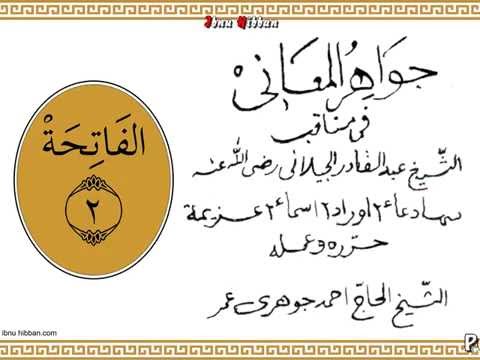 Ibnu Hibban
جَوَاهِرُ المَعَانِيْ
فِى مَنَاقِب
الشّيخ عبد القادر الجيلاني رضي الله عنه
سمادعاء۲ اوراد۲ اسماء۲ عزيمة
حرّره وعمله
الشّيخ الحاجّ احمد جوهرى عمر
الفَاتِحَةْ
٢
ibnu hibban.com
P